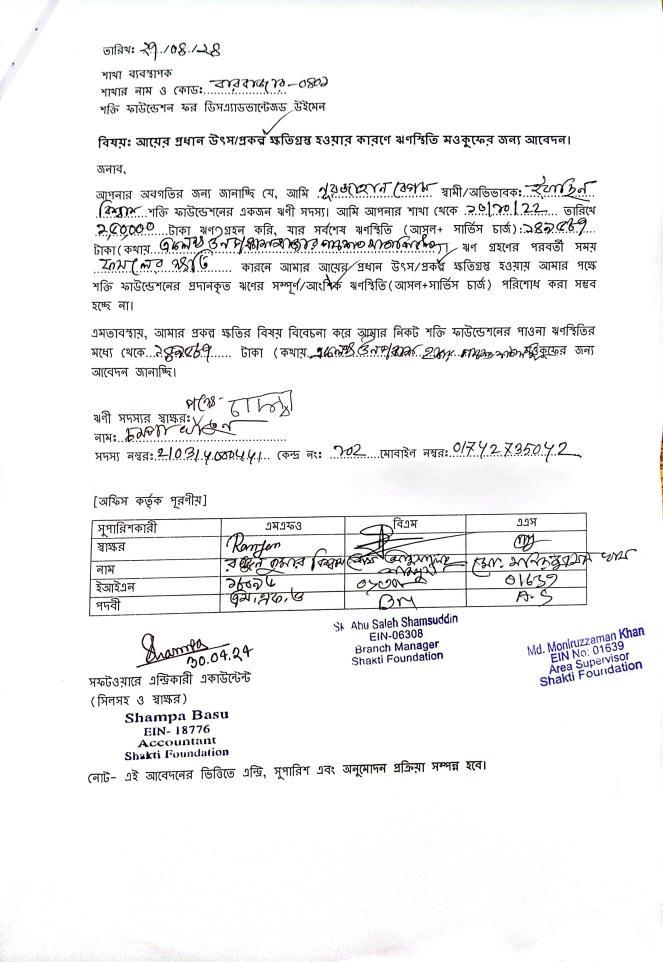 তারিখ: ২৭/০৪/২৪
শাখা ব্যবস্থাপক
শাখার নাম ও কোড: বারবাজার-০৪০৯
শক্তি ফাউন্ডেশন ফর ডিসএ্যাডভান্টেজড উইমেন
বিষয়: আয়ের প্রধান উৎস/প্রকল্প ক্ষতিগ্রস্ত হওয়ার কারণে ঋণস্থিতি মওকুফের জন্য আবেদন।
জনাব,
আপনার অবগতির জন্য জানাচ্ছি যে, আমি নুরজাহান বেগম স্বামী/অভিভাবক:
বিশ্বাস শক্তি ফাউন্ডেশনের একজন ঋণী সদস্য। আমি আপনার শাখা থেকে ২০/১০/২২ তারিখে
টাকা ঋণগ্রহণ করি, যার সর্বশেষ ঋণস্থিতি (আসল+ সার্ভিস চার্জ)
টাকা(কথায় ঋণ গ্রহণের পরবর্তী সময়
কারনে আমার আয়ের প্রধান উৎস/প্রকল্প ক্ষতিগ্রস্ত হওয়ায় আমার পক্ষে
শক্তি ফাউন্ডেশনের প্রদানকৃত ঋণের সম্পূর্ণ/আংশিক ঋণস্থিতি(আসল+সার্ভিস চার্জ) পরিশোধ করা সম্ভব
হচ্ছে না।
এমতাবস্থায়, আমার প্রকল্প ক্ষতির বিষয় বিবেচনা করে আমার নিকট শক্তি ফাউন্ডেশনের পাওনা ঋণস্থিতির
মধ্যে থেকে টাকা (কথায় মওকুফের জন্য
আবেদন জানাচ্ছি।
পক্ষে-
ঋণী সদস্যর স্বাক্ষর:
নাম: চম্পা খাতুন
সদস্য নম্বর: কেন্দ্র নং: ১০২ মোবাইল নম্বর: 01742735042
[অফিস কর্তৃক পূরণীয়]
সুপারিশকারী এমএফও বিএম এএস
স্বাক্ষর Ranjan
নাম কুমার বিশ্বাস
ইআইএন 01639
পদবী এম,এফ,ও BM A.S
Sk Abu Saleh Shamsuddin
EIN-06308
Branch Manager
Shakti Foundation
Md. Moniruzzaman Khan
EIN No: 01639
Area Supervisor
Shakti Foundation
Shampa
30.04.24
সফটওয়ারে এন্ট্রিকারী একাউন্টেন্ট
(সিলসহ ও স্বাক্ষর)
Shampa Basu
EIN- 18776
Accountant
Shakti Foundation
নোট- এই আবেদনের ভিত্তিতে এন্ট্রি, সুপারিশ এবং অনুমোদন প্রক্রিয়া সম্পন্ন হবে।